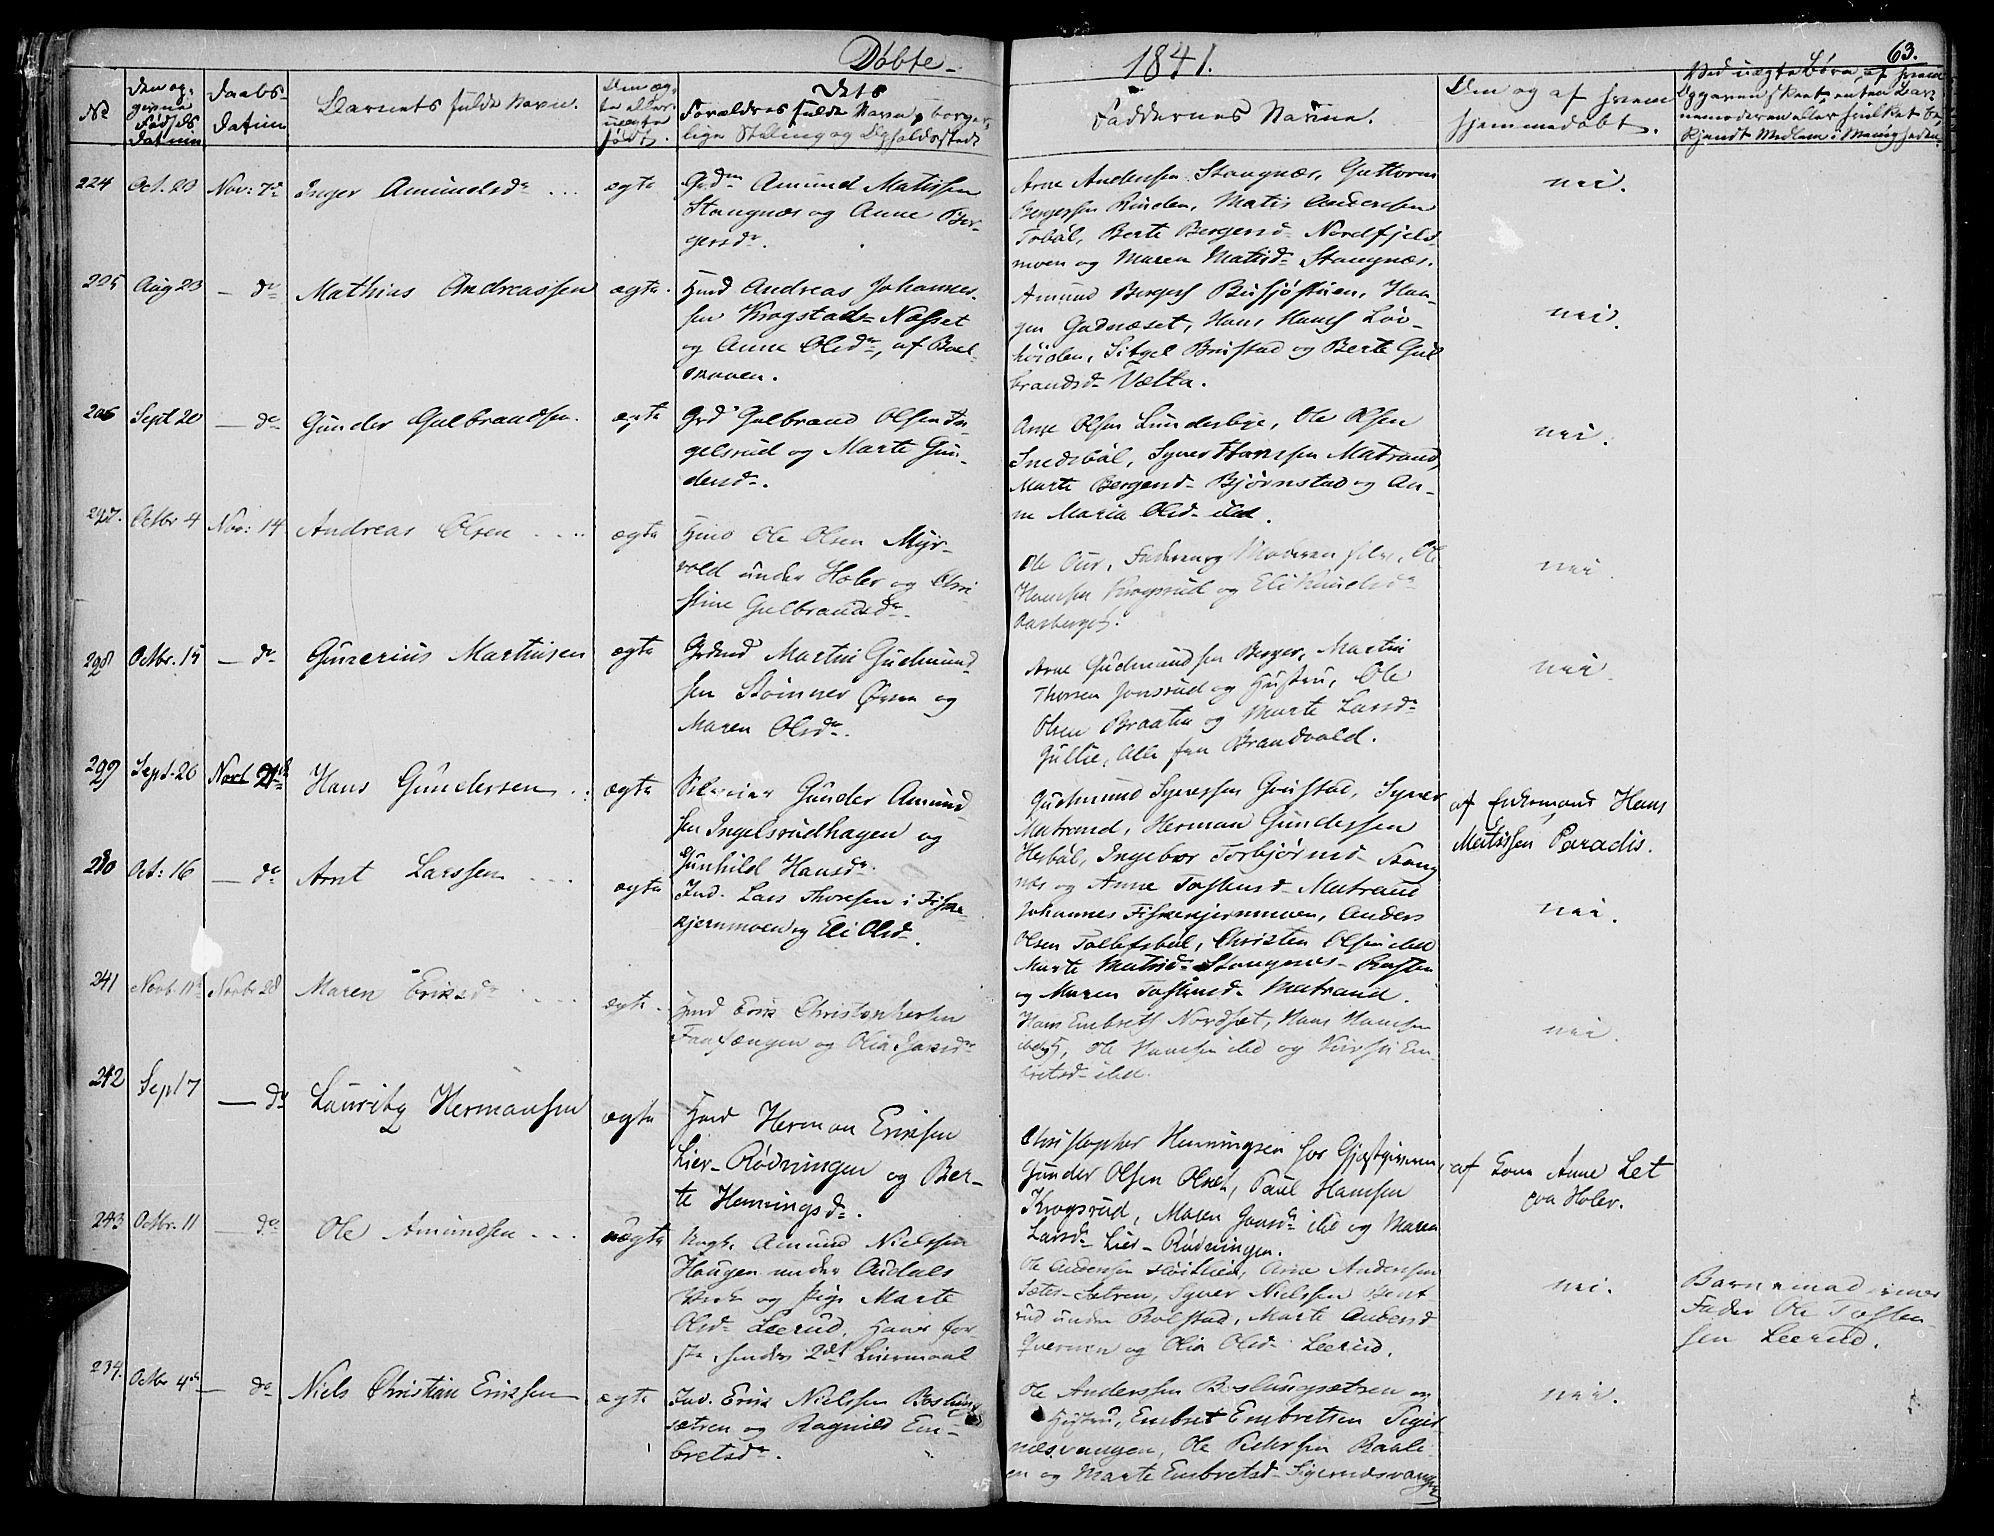 Døbte
1841.
63.
No
Den op-
givne
Fødsels
Datum
Daabs-
Datum
Barnets fulde Navn.
Den æg-
te eller
uægte
født.
Dets
Forældres fulde Navne, borger-
lige Stilling og Opholdssted
Faddernes Navne.
Om og af hvem
hjemmedøbt.
Ved uægte Børn, af hvem
Opgaven skeet, enten Bar-
nemoderen eller hvilket be-
kjendt Medlem i Menigheden.
224 Oct. 20 Nov: 7de Inger Amundsdr ægte
Grdm Amund Matissen
Stangnæs og Anne Ber-
gersdr.
Arne Andersen Stangnæs, Guttorm
Bergersen Rinden, Matis Andersen
Tobøl, Berte Bergersd. Nordfjeld-
moen og Maren Matisd. Stangnæs.
nei.
225 Aug 23 — do Mathias Andreassen ægte.
Husd Andreas Johannes-
sen Krogstad-Næsset
og Anne Olsdr, af Boel-
skoven.
Amund Bergers Busjøstuen, Han-
Gadnæset, Hans Hans Løv-
høiden, Brustad og Berte Gul
brandsd. Vælta.
nei.
206 Sept 20 — do Gunder Gulbrandsen. ægte
Grd Gulbrand Olsen In-
gelsrud og Marte Gun-
dersd.
Arne Olsen Linderberg, Ole Olsen
Snedsbøl, Syver Hanssen Matrand,
Marte Bergersd. Bjørnstad og An-
ne Maria Olsd. ibd.
nei.
227. Octbr 4 Nov: 14 Andreas Olsen ægte
Husd Ole Olsen Myr-
vold under Holer og Chri-
stine Gulbrandsdr.
Ole Aur, Faderen og Moderen selv, Ole
Hansen Krogsrud og Eli Knudsdr
Aasberget.
nei.
298 Octbr. 15 — do Gunerius Martinsen ægte
Grdmd Martin Gudmund
sen Skinner Øvren og
Maren Olsdr.
Arne Gudmundsen Berger, Martin
Thorsen Jonsrud og Hustru, Ole
Olsen Braaten og Marte Larsdr
Gullie, Alle fra Brandvold.
nei.
299 Sept. 26 Novb 21de Hans Gundersen ægte
Gunder Amund
sen Ingelsrudhagen og
Gunhild Hansdr.
Gudmund Syversen Grustad, Syver
Matrand, Herman Gundersen
Hesbøl, Ingebor Torbjørnsd. Stang
næs og Anne Tostensd. Matrand
af Enkemand Hans
Matissen Paradis.
230 Oct: 16 — do Arnt Larssen ægte
Ind. Lars Thoresen i Fiske-
kjernmoen og Eli Olsd.
Johannes Fiskekjernmoen, Anders
Olsen Tollefsbøl, Christen Olsen ibd
Marte Matisd. Stangnæs-
og Maren Tostensd. Matrand.
nei.
241 Novb. 11te Novbr 28 Maren Eriksdr ægte.
Husd Erik Christophersen
og Olia
Hans Embrets Nordset, Hans Hansen
Ole Hansen ibd og Kirsti Em-
bretsd. ibd.
nei.
242 Sept 7 — do Lauritz Hermansen ægte
Husd Herman Eriksen
Lier-Rødningen og Ber-
te Henningsd.
Christopher Henningsen hos Gjæstgiveren,
Gunder Olsen Paul Hansen
Krogsrud, Maren ibd og Maren
Larsd. Lier-Rødningen.
af Gom Anne Let
paa Holer.
243 Octbr. 11 — do Ole Amundsen uægte
Ungk. Amund Nielssen
Haugen under Oudals
Værk og Pige Marte
Olsd. Leerud, Hans før-
ste, hendes 2det Leiermaal
Ole Andersen Arne Andersen
Sæter-Sætren, Syver Nielssen
rud under Rolstad, Marte Andersd.
Qvernen og Olia Olsd. Leerud.
nei.
Barnemoderens
Fader Ole Tosten-
sen Leerud.
234. Octbr 4de — do Niels Christian Eriksen ægte
Ind. Erik Nielssen Boslung
sætren og Ragnild Em-
bretsdr.
Ole Anderssen Boslungsætren og
Hustru, Embret Embretsen Siger
næsvangen, Ole Pedersen
og Marte Embretsd. Sigernæsvangen
nei.